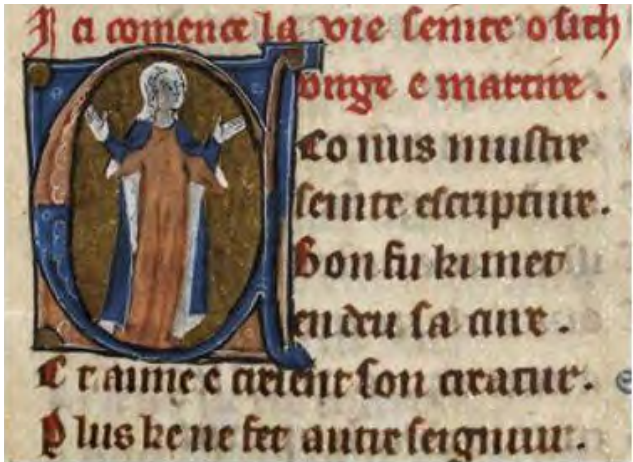 Ici comence la vie seinte osith
virge e martire.
Ço nus mustre
seinte escripture.
Bon fu ki met
en deu sa cure.
E r aime e crient son creatur.
Plus ke ne fet autre seigniur.